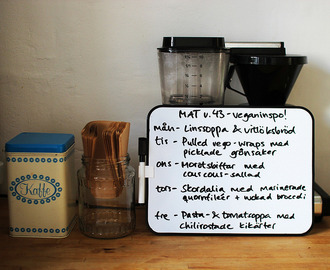 MAT v.43 - veganinspo!
mån - Linssoppa & vitlöksbröd
tis - Pulled vego-wraps med
picklade grönsaker
ons - Morotsbiffar med
couscous-sallad
tors - Skordalia med marinerade
quornfiléer + kokad broccoli
fre - Pasta- & tomatsoppa med
chilirostade kikärter
Kaffe